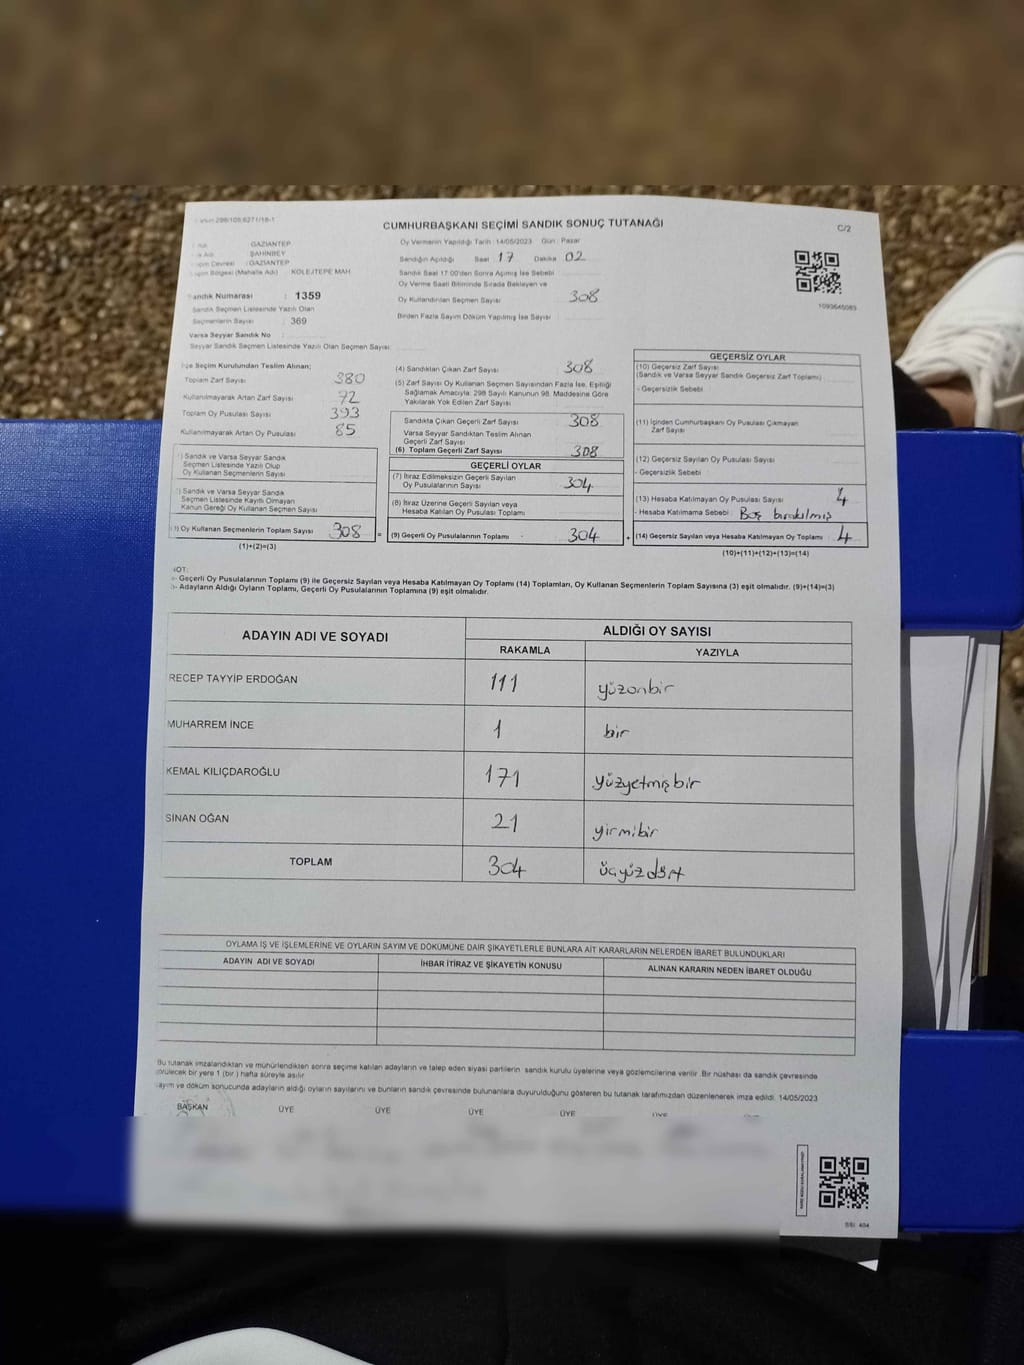 CUMHURBAŞKANI SEÇİMİ SANDIK SONUÇ TUTANAĞI
C/2
GAZİANTEP
ŞAHİNBEY
GAZİANTEP
(Mahalle Adı) : KOLEJTEPE MAH
Sandık Numarası : 1359
Sandık Seçmen Listesinde Yazılı Olan
Seçmenlerin Sayısı : 369
Varsa Seyyar Sandık No :
Seyyar Sandık Seçmen Listesinde Yazılı Olan Seçmen Sayısı:
Oy Vermenin Yapıldığı Tarih : 14/05/2023 Gün : Pazar
Sandığın Açıldığı Saat 17 Dakika 02
Sandık Saat 17:00'den Sonra Açılmış İse Sebebi
Oy Verme Saati Bitiminde Sırada Bekleyen ve
Oy Kullandırılan Seçmen Sayısı 308
Birden Fazla Sayım Döküm Yapılmış İse Sayısı :
1093645083
İlçe Seçim Kurulundan Teslim Alınan;
Toplam Zarf Sayısı 380
Kullanılmayarak Artan Zarf Sayısı 72
Toplam Oy Pusulası Sayısı 393
Kullanılmayarak Artan Oy Pusulası 85
Sandık ve Varsa Seyyar Sandık
Seçmen Listesinde Yazılı Olup
Oy Kullanan Seçmenlerin Sayısı
Sandık ve Varsa Seyyar Sandık
Seçmen Listesinde Kayıtlı Olmayan
Kanun Gereği Oy Kullanan Seçmen Sayısı
Oy Kullanan Seçmenlerin Toplam Sayısı 308 =
(1)+(2)=(3)
(4) Sandıktan Çıkan Zarf Sayısı 308
(5) Zarf Sayısı Oy Kullanan Seçmen Sayısından Fazla İse, Eşitliği
Sağlamak Amacıyla; 298 Sayılı Kanunun 98. Maddesine Göre
Yakılarak Yok Edilen Zarf Sayısı
Sandıkta Çıkan Geçerli Zarf Sayısı 308
Varsa Seyyar Sandıktan Teslim Alınan
Geçerli Zarf Sayısı
(6) Toplam Geçerli Zarf Sayısı 308
GEÇERLİ OYLAR
(7) İtiraz Edilmeksizin Geçerli Sayılan
Oy Pusulalarının Sayısı 304
(8) İtiraz Üzerine Geçerli Sayılan veya
Hesaba Katılan Oy Pusulası Toplamı
(9) Geçerli Oy Pusulalarının Toplamı 304 +
GEÇERSİZ OYLAR
(10) Geçersiz Zarf Sayısı
(Sandık ve Varsa Seyyar Sandık Geçersiz Zarf Toplamı)
- Geçersizlik Sebebi
(11) İçinden Cumhurbaşkanı Oy Pusulası Çıkmayan
Zarf Sayısı
(12) Geçersiz Sayılan Oy Pusulası Sayısı
- Geçersizlik Sebebi
(13) Hesaba Katılmayan Oy Pusulası Sayısı 4
- Hesaba Katılmama Sebebi : Boş bırakılmış
(14) Geçersiz Sayılan veya Hesaba Katılmayan Oy Toplamı 4
(10)+(11)+(12)+(13)=(14)
NOT:
Geçerli Oy Pusulalarının Toplamı (9) ile Geçersiz Sayılan veya Hesaba Katılmayan Oy Toplamı (14) Toplamları, Oy Kullanan Seçmenlerin Toplam Sayısına (3) eşit olmalıdır. (9)+(14)=(3)
Adayların Aldığı Oyların Toplamı, Geçerli Oy Pusulalarının Toplamına (9) eşit olmalıdır.
ADAYIN ADI VE SOYADI
ALDIĞI OY SAYISI
RAKAMLA
YAZIYLA
RECEP TAYYİP ERDOĞAN 111 yüzonbir
MUHARREM İNCE 1 bir
KEMAL KILIÇDAROĞLU 171 yüzyetmişbir
SİNAN OĞAN 21 yirmibir
TOPLAM 304 üçyüzdört
OYLAMA İŞ VE İŞLEMLERİNE VE OYLARIN SAYIM VE DÖKÜMÜNE DAİR ŞİKAYETLERLE BUNLARA AİT KARARLARIN NELERDEN İBARET BULUNDUKLARI
ADAYIN ADI VE SOYADI
İHBAR İTİRAZ VE ŞİKAYETİN KONUSU
ALINAN KARARIN NEDEN İBARET OLDUĞU
Bu tutanak imzalandıktan ve mühürlendikten sonra seçime katılan adayların ve talep eden siyasi partilerin sandık kurulu üyelerine veya gözlemcilerine verilir. Bir nüshası da sandık çevresinde
görülecek bir yere 1 (bir) hafta süreyle asılır
Sayım ve döküm sonucunda adayların aldığı oyların sayılarını ve bunların sandık çevresinde bulunanlara duyurulduğunu gösteren bu tutanak tarafımızdan düzenlenerek imza edildi. 14/05/2023
BAŞKAN ÜYE ÜYE ÜYE ÜYE ÜYE
SSI: 404